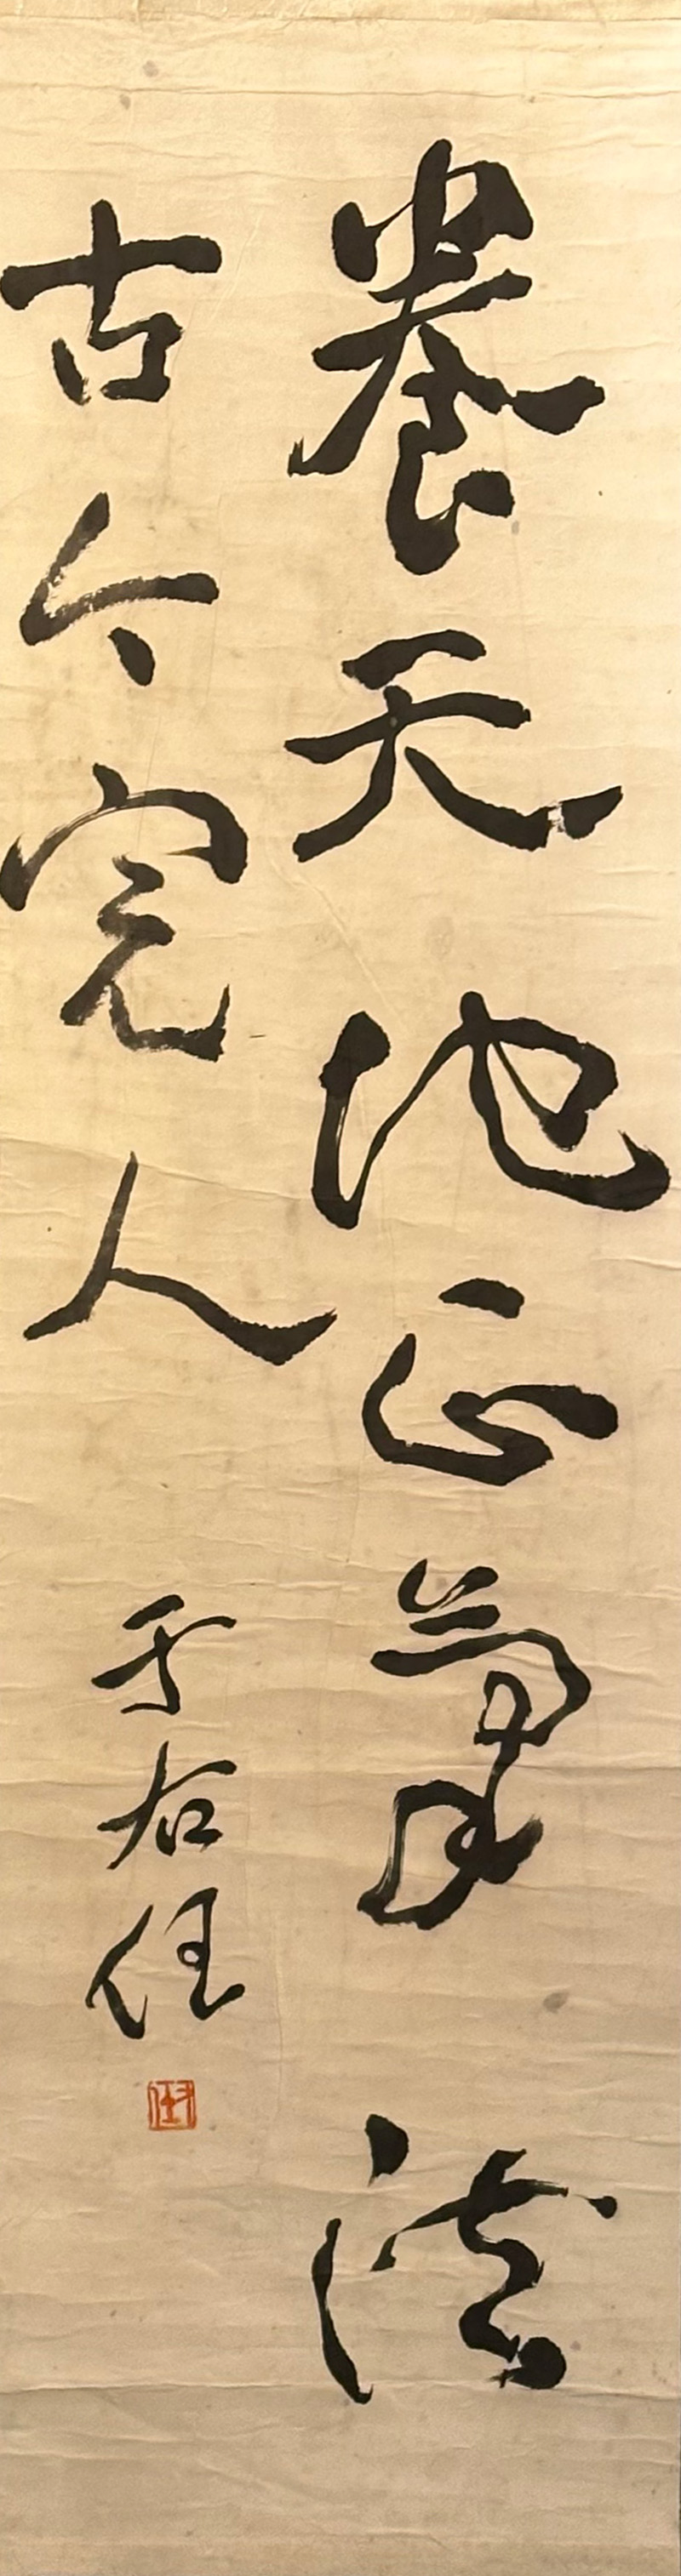 養天地正氣法
古今完人
于右任